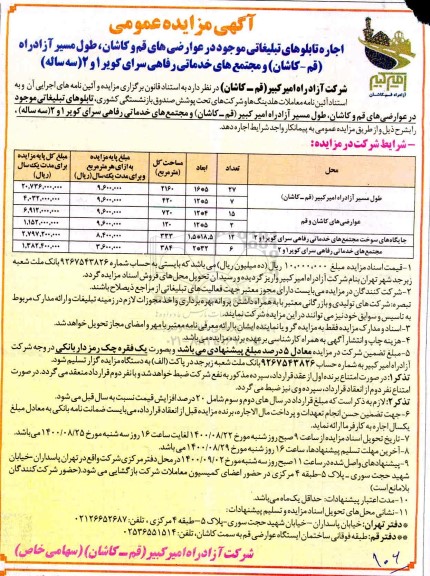 آگهی مزایده عمومی
اجاره تابلوهای تبلیغاتی موجود در عوارضی های قم و کاشان، طول مسیر آزادراه
(قم - کاشان) و مجتمع های خدماتی رفاهی سرای کویر ۱ و ۲ (سه ساله)
امیرکبیر
آزادراه قم-کاشان
شرکت آزادراه امیر کبیر (قم – کاشان) در نظر دارد به استناد قانون برگزاری مزایده و آئین نامه های اجرایی آن و به
استناد آئین نامه معاملات هلدینگ ها و شرکت های تحت پوشش صندوق بازنشستگی کشوری، تابلوهای تبلیغاتی موجود
در عوارضی های قم و کاشان، طول مسیر آزادراه امیر کبیر (قم – کاشان) و مجتمع های خدماتی رفاهی سرای کویر ۱ و ۲ (سه ساله)،
را بشرح ذیل و از طریق مزایده عمومی به پیمانکار واجد شرایط اجاره دهد.
- شرایط شرکت در مزایده:
محل تعداد ابعاد مساحت کل (مترمربع) مبلغ پایه مزایده به ازای هر مترمربع و برای مدت یک سال (ریال) مبلغ کل پایه مزایده برای مدت یک سال (ریال)
طول مسیر آزادراه امیر کبیر (قم – کاشان) ۲۷ ۵*۱۶ ۲۱۶۰ ۹.۶۰۰.۰۰۰ ۲۰.۷۳۶.۰۰۰.۰۰۰
۷ ۵*۱۲ ۴۲۰ ۹.۶۰۰.۰۰۰ ۴.۰۳۲.۰۰۰.۰۰۰
عوارضی های کاشان و قم ۱۵ ۴*۱۲ ۷۲۰ ۹.۶۰۰.۰۰۰ ۶.۹۱۲.۰۰۰.۰۰۰
۲ ۵*۱۲ ۱۲۰ ۹.۶۰۰.۰۰۰ ۱.۱۵۲.۰۰۰.۰۰۰
جایگاه های سوخت مجتمع های خدماتی رفاهی سرای کویر ۱ و ۲ ۱۲ ۱.۵*۱۸.۵ ۳۳۳ ۸.۴۰۰.۰۰۰ ۲.۷۹۷.۲۰۰.۰۰۰
مجتمع های خدماتی رفاهی سرای کویر ۱ و ۲ ۶ ۲*۳۲ ۳۸۴ ۳.۶۰۰.۰۰۰ ۱.۳۸۲.۴۰۰.۰۰۰
۱- قیمت اسناد مزایده مبلغ ۱۰.۰۰۰.۰۰۰ ریال (ده میلیون ریال) می باشد که بایستی به حساب شماره ۹۲۶۷۵۴۳۸۲۶ بانک ملت شعبه
زیرجد شهر تهران بنام شرکت آزادراه امیر کبیر واریز گردیده و رسید آن تحویل محل های فروش اسناد مزایده گردد.
۲- شرکت کنندگان در مزایده می بایست دارای مجوز معتبر جهت فعالیت های تبلیغاتی از مراجع ذیصلاح باشند.
تبصره: شرکت های تولیدی و بازرگانی معتبر با به همراه داشتن پروانه بهره برداری و اخذ مجوزات لازم در زمینه تبلیغات و ارائه مدارک مربوط
به تاسیس و سوابق خود نیز می توانند در این مزایده شرکت نمایند.
۳- اسناد و مدارک مزایده فقط به مزایده گر و یا نماینده ایشان با ارائه معرفی نامه معتبر با مهر و امضای مجاز تحویل خواهد شد.
۴- هزینه چاپ و انتشار آگهی به همراه کارشناسی بر عهده برنده مزایده می باشد.
۵- مبلغ تضمین شرکت در مزایده معادل ۵ درصد مبلغ پیشنهادی می باشد و بصورت یک فقره چک رمزدار بانکی در وجه شرکت
آزادراه امیر کبیر به شماره حساب ۹۲۶۷۵۴۳۸۲۶ بانک ملت شعبه زیرجد در پاکت (الف) به دستگاه مزایده گزار تسلیم شود.
تذکر ۱: در صورت امتناع برنده اول از عقد قرارداد، سپرده مذکور به نفع شرکت ضبط خواهد شد و با نفر دوم قرارداد منعقد می گردد. در صورت
امتناع نفر دوم از انعقاد قرارداد، سپرده وی نیز ضبط می گردد.
تذکر ۲: لازم به ذکر است که مبلغ قرارداد در سال های دوم و سوم شامل ۲۰ درصد افزایش قیمت نسبت به سال قبل می شود.
۶- جهت تضمین حسن انجام تعهدات و پرداخت مال الاجاره، برنده مزایده قبل از انعقاد قرارداد، می بایست ضمانت نامه بانکی به معادل مبلغ
یکسال اجاره به کارفرما ارائه نماید.
۷- تاریخ تحویل اسناد مزایده از ساعت ۹ صبح روز شنبه مورخ ۱۴۰۰/۰۸/۲۲ لغایت ساعت ۱۶ روز سه شنبه مورخ ۱۴۰۰/۰۸/۲۵ می باشد.
۸- آخرین مهلت تسلیم پیشنهادها، ساعت ۱۶ روز شنبه مورخ ۱۴۰۰/۰۸/۲۹ می باشد.
۹- پیشنهادهای واصل شده در ساعت ۱۱ صبح روز سه شنبه مورخ ۱۴۰۰/۰۹/۰۲ در محل دفتر مرکزی شرکت واقع در تهران پاسداران – خیابان
شهید حجت سوری - پلاک ۵ – طبقه ۴ مرکزی در حضور اعضای کمیسیون معاملات شرکت بازگشایی می شود. (حضور شرکت کنندگان
بلامانع است)
۱۰- مدت اعتبار پیشنهادات: حداقل یک ماه می باشد.
۱۱- نشانی محل های تحویل اسناد مزایده و تسلیم پیشنهادات:
* دفتر تهران: خیابان پاسداران – خیابان شهید حجت سوری – پلاک ۵ – طبقه ۴ مرکزی – تلفن: ۰۲۱۲۶۶۵۲۶۸۷
* دفتر قم: طبقه فوقانی ساختمان ایستگاه عوارضی قم به سمت کاشان، تلفن: ۰۲۵۳۶۵۵۱۵۱۴
شرکت آزادراه امیر کبیر (قم – کاشان) (سهامی خاص)